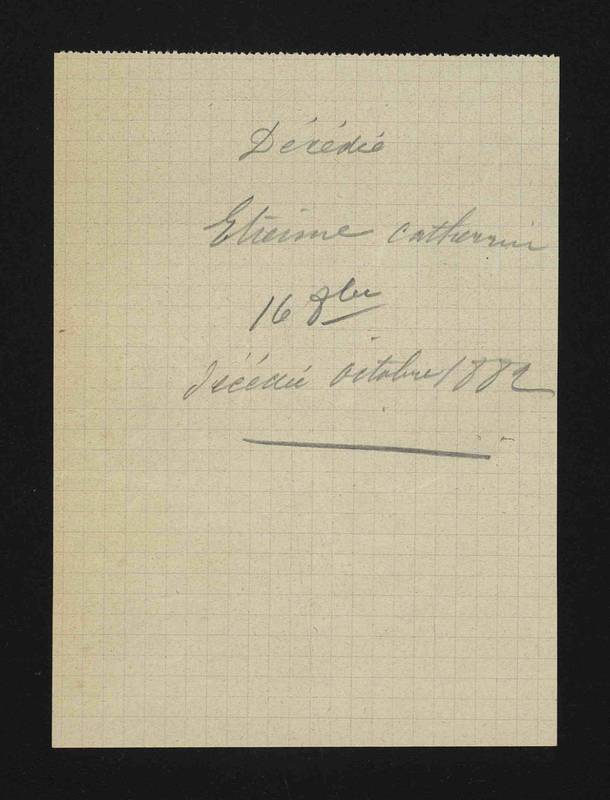 Dérédié
Etienne Catherine
16 8bre
décédé octobre 1882